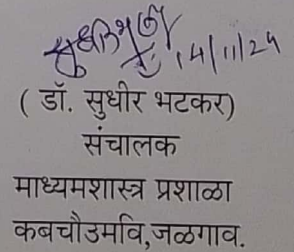 14/11/24
( डॉ. सुधीर भटकर)
संचालक
माध्यमशास्त्र प्रशाळा
कबचौउमवि,जळगाव.